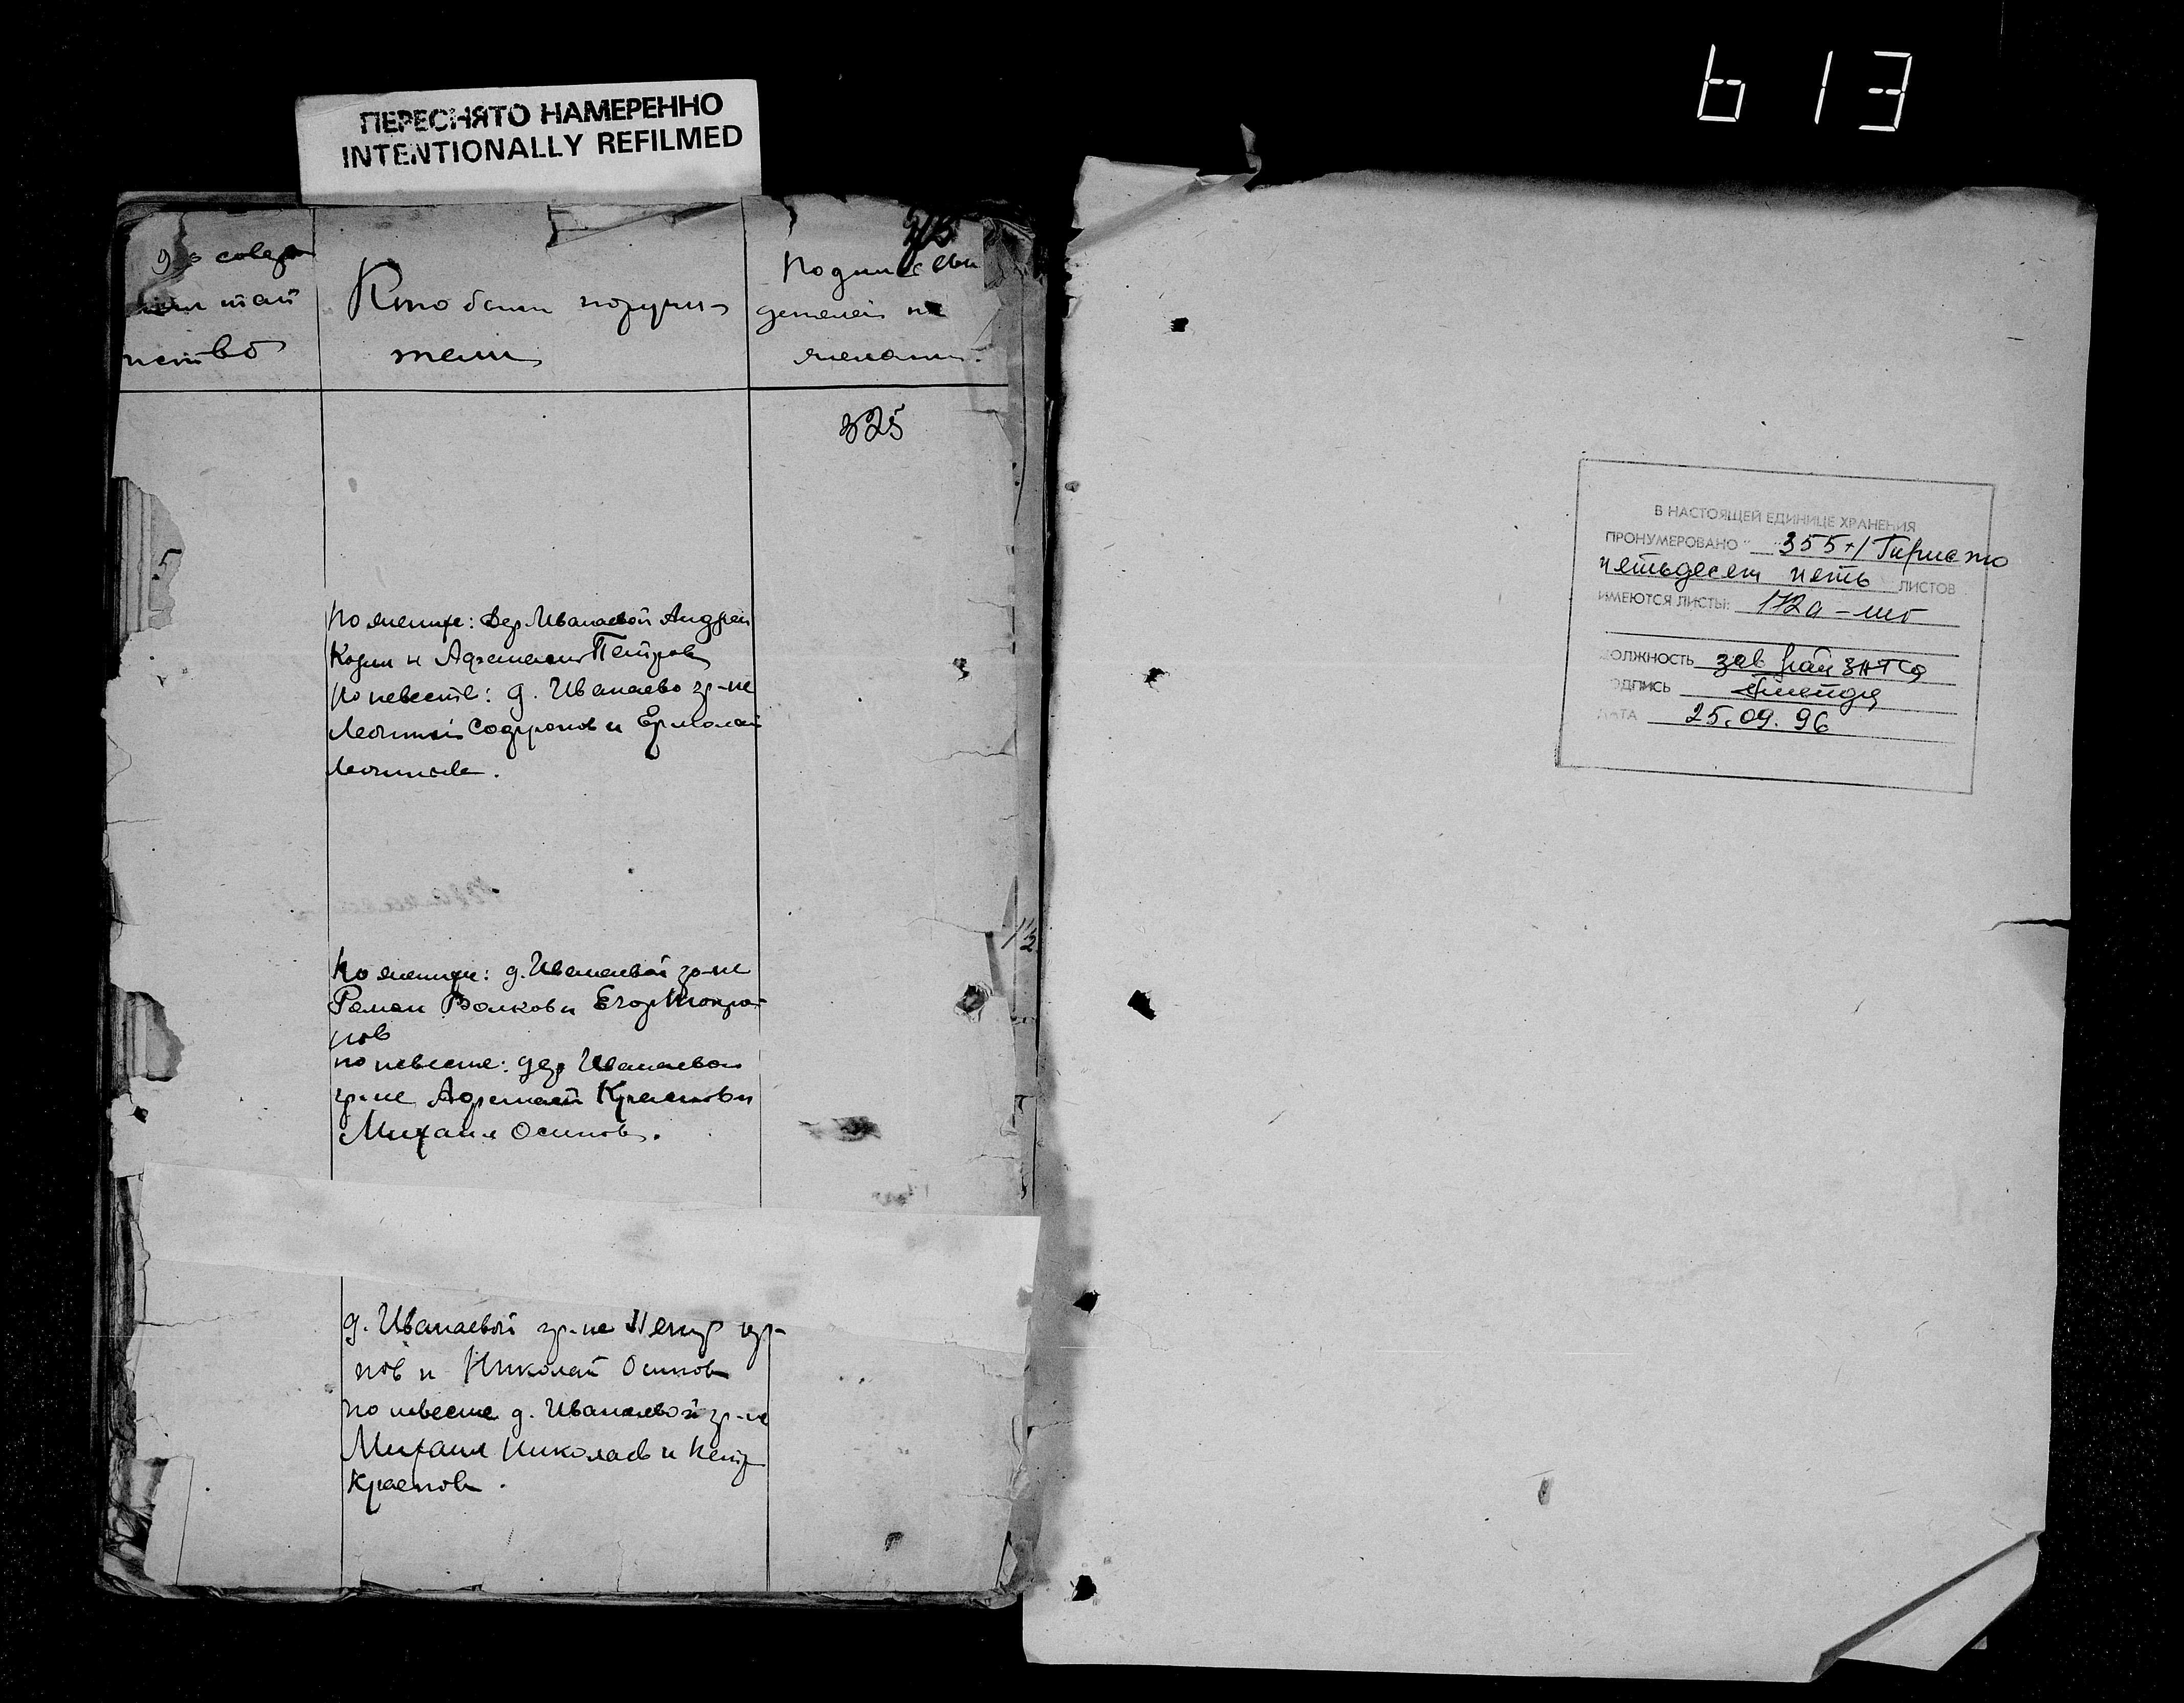 613
ПЕРЕСНЯТО НАМЕРЕННО
INTENTIONALLY REFILMED
Кто были поручи-
тели
детелей по
желанию.
325
5
По жениху: дер Иванаевой Андрей
Козин и Афанасий Петров
По невесте: д. Иванаево гр-не
Леонтий Софронов и Ермолай
Леонтьев.
По жениху: д. Иванаевой гр-не
Роман Волков и Егор
нов
по невесте: дер Иванаевой
гр-не Краснов и
Михаил Осипов.
д. Иванаевой гр-не Петр
нов и Николай Осипов
по невесте д. Иванаевой гр-не
Михаил Николаев и Петр
Краснов.
В НАСТОЯЩЕЙ ЕДИНИЦЕ ХРАНЕНИЯ
ПРОНУМЕРОВАНО 355+1 Триста
пятьдесят пять ЛИСТОВ
ИМЕЮТСЯ ЛИСТЫ: 172а
ДОЛЖНОСТЬ зав
ПОДПИСЬ
ДАТА 25.09.96